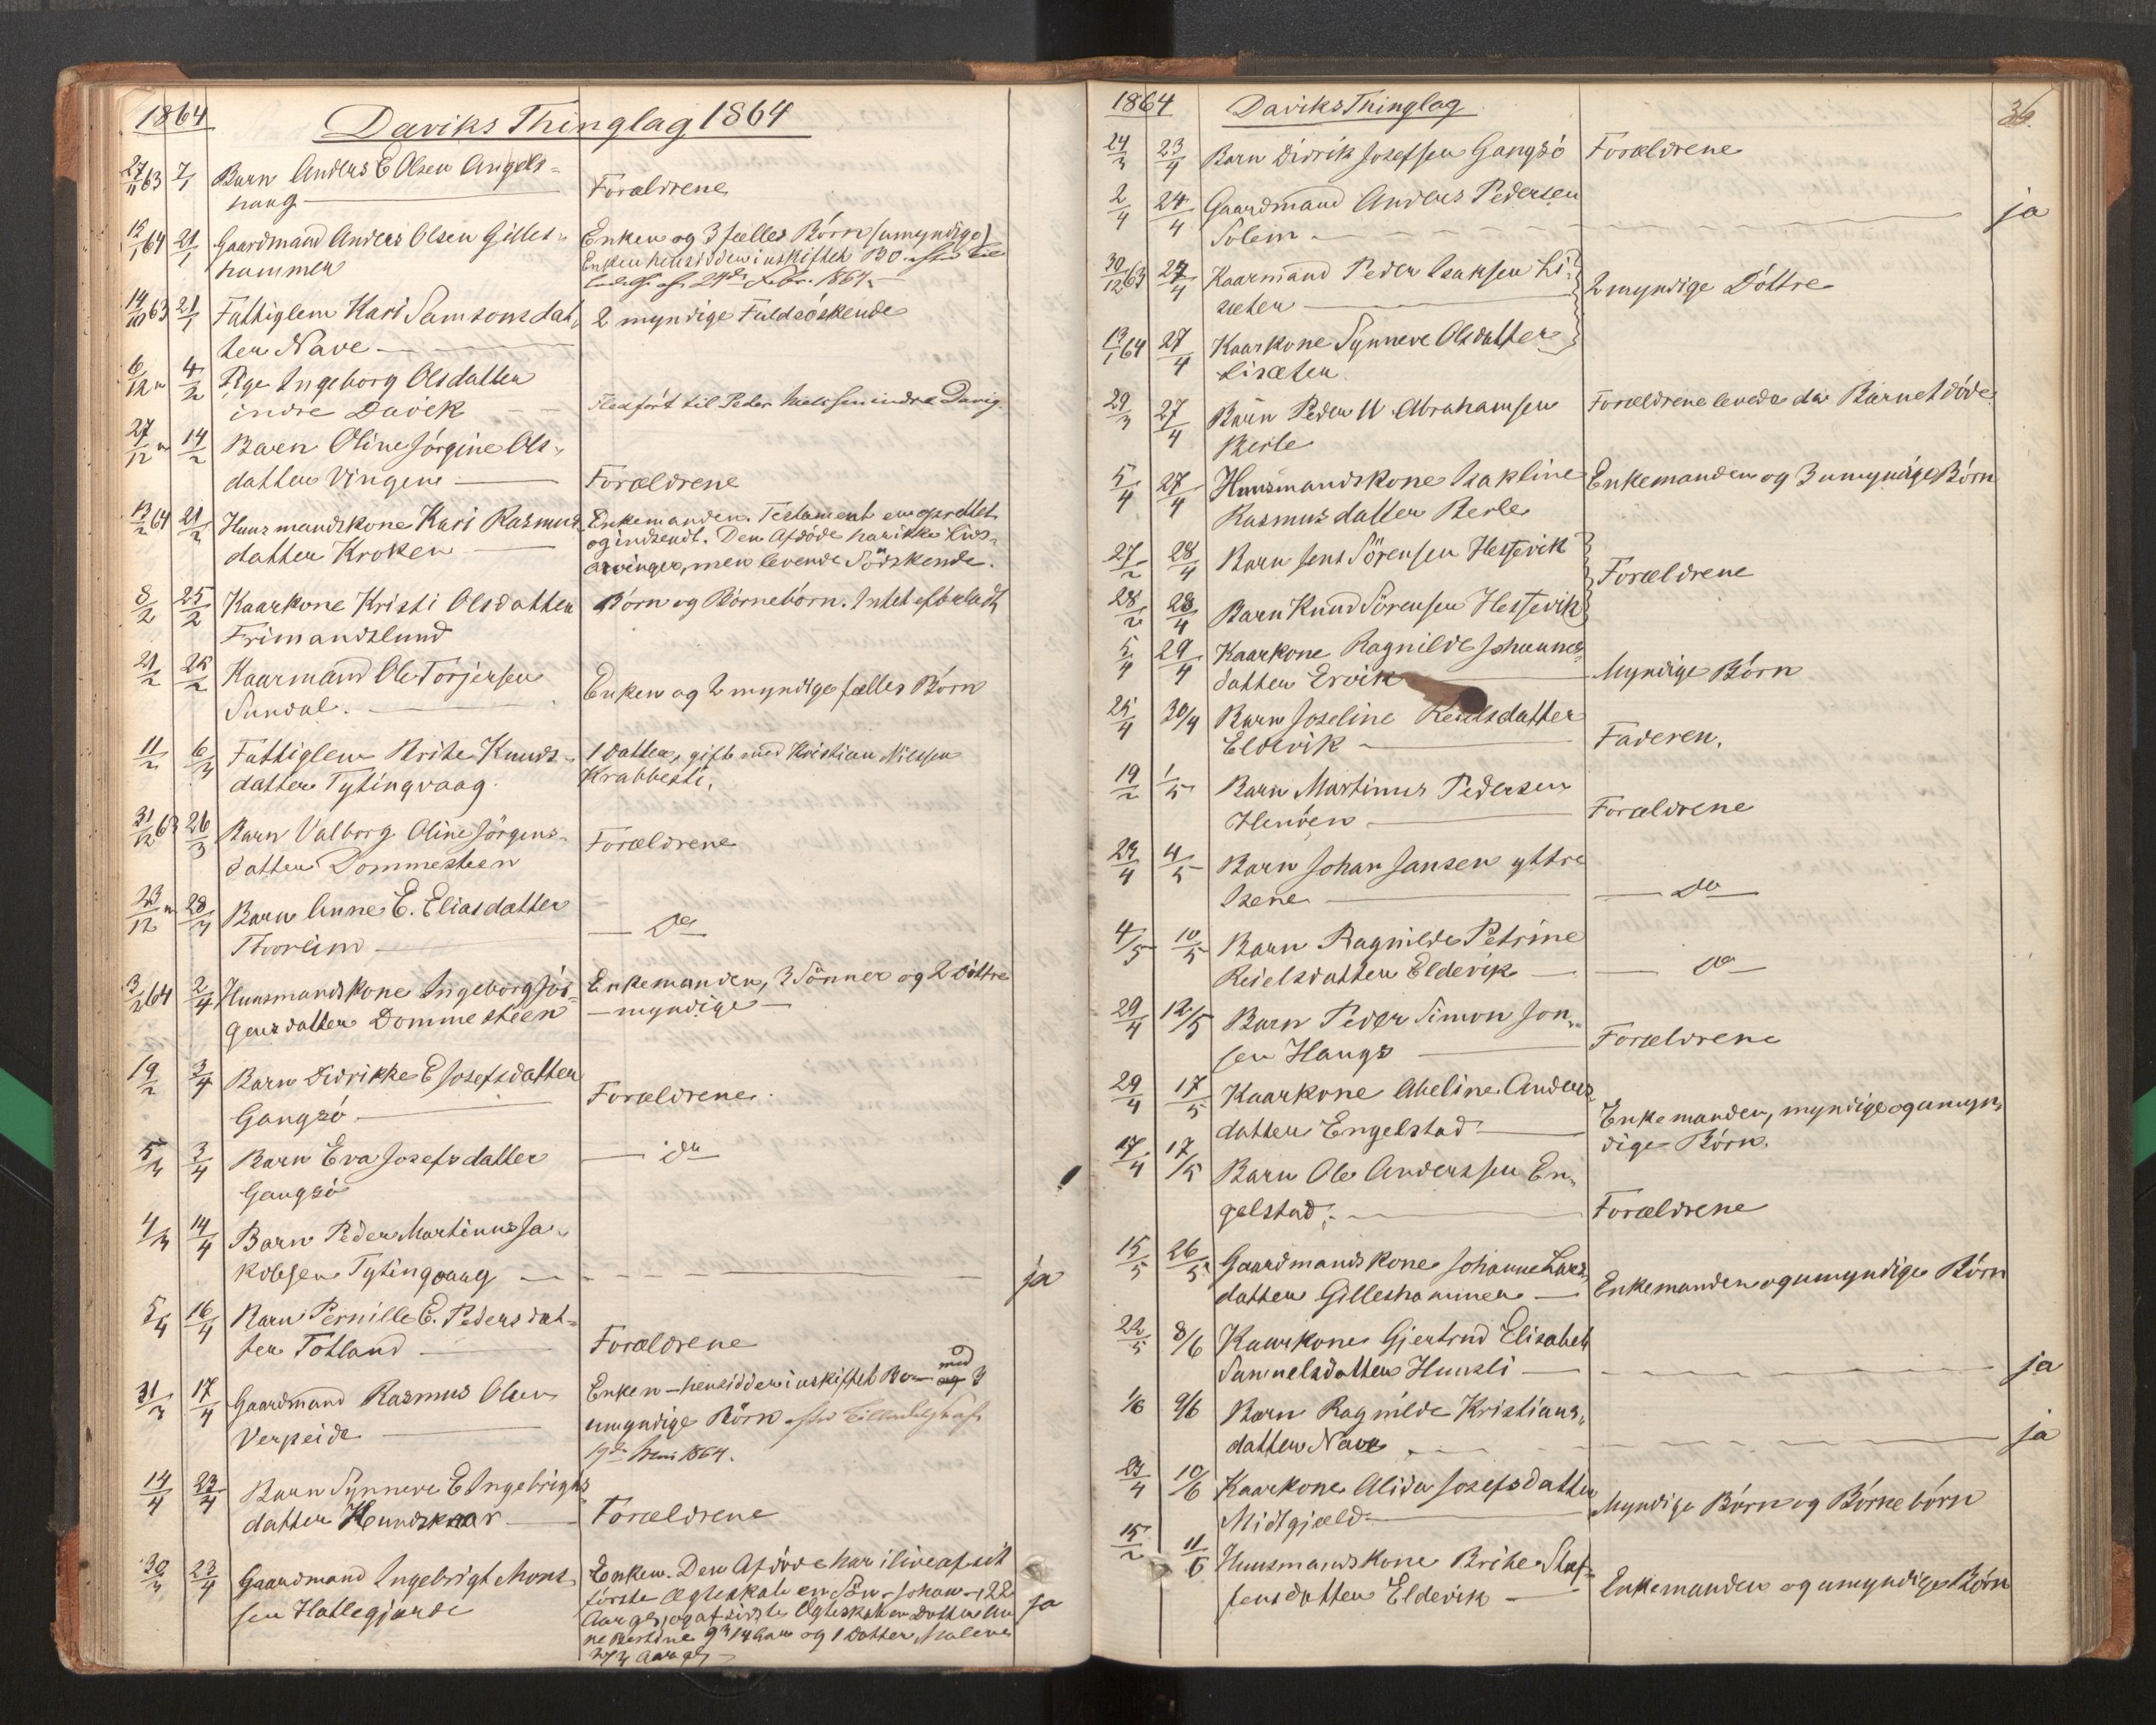 1864 Daviks Thinglag 1864
27/11 63 7/1 Barn Anders E Olsen Angels-
haug Forældrene
21/1 Gaardmand Anders Olsen Gilles- Enken og 3 fælles Børn (umyndige)
hammer Enken hensidder i uskiftet Bo
24de Febr. 1864.
14/10 63 21/1 Fattiglem Kari Samsonsdat- 2 myndige Fuldsøskende
ter Nave
6/12 " 4/2 Pige Ingeborg Olsdatter
indre Davik Fledført til Peder indre Davig.
27/12 " 14/2 Barn Oline Jørgine Ols-
datter Vingen Forældrene
13/2 64 21/2 Huusmandskone Kari Rasmus- Enkemanden. Testament er oprettet
datter Kroken og indsendt. Den Afdøde har ikke Livs-
arvinger, men levende Södskende.
8/2 25/2 Kaarkone Kristi Olsdatter Børn og Børnebørn. Intet efterladt
Frimandslund
21/2 25/2 Kaarmand Ole Torjersen
Sundal. Enken og 2 myndige fælles Børn
11/2 6/3 Fattiglem Brithe Knuds- 1 Datter, gift med Kristian Nilssen
datter Tytingvaag. Krabbesti.
31/12 63 26/3 Barn Valborg Oline Jörgens-
datter Dommesteen Forældrene
23/12 " 28/3 Barn Anne E. Eliasdatter
Thorheim do
3/2 64 2/4 Huusmandskone Ingeborg Jör- Enkemanden, 3 Sönner og 2 Döttre
gensdatter Dommesteen myndige
19/2 3/4 Barn Didrikke E Josefsdatter
Gangsö Forældrene.
5/3 3/4 Barn Eva Josefsdatter do
Gangsö
4/3 14/4 Barn Peder Martinus Ja-
kobsen Tytingvaag ja
5/4 16/4 Barn Pernille E. Pedersdat-
ter Totland Forældrene
31/3 17/4 Gaardmand Rasmus Olsen Enken hensidder i uskiftet Bo med 3
Verpeide umyndige Börn
1864.
14/4 23/4 Barn Synneve E Ingebrigts
datter Hundskaar Forældrene
30/3 23/4 Gaardmand Ingebrigt Mons- Enken. Den Afdøde har i live af sit
sen Hatlegjerde förste Ægteskab en Sön Johan 22
Aar gl, og af sidste Ægteskab en Datter An-
ne 14 Aar og 1 Datter Malene
Aar gl ja
1864 Daviks Thinglag 36.
24/3 23/4 Barn Didrik Josefsen Gangsö Forældrene
2/4 24/4 Gaardmand Anders Pedersen
Solein ja
30/12 63 27/4 Kaarmand Peder Isaksen Li-
sæter 2 myndige Döttre
13/1 64 27/4 Kaarkone Synneve Olsdatter
Lisæter
29/3 27/4 Barn Peder Abrahamsen Forældrene levede da Barnet döde.
Berle
5/4 27/4 Huusmandskone Isakline Enkemanden og 3 umyndige Börn
Rasmusdatter Berle
27/2 28/4 Barn Jens Sörensen Hessevik
Forældrene
28/2 28/4 Barn Knud Sörensen Hessevik
5/4 29/4 Kaarkone Ragnilde Johannes-
datter Ervik Myndige Börn
25/4 30/4 Barn Joseline Reidsdatter
Eldevik Faderen.
19/2 1/5 Barn Martinus Pedersen
Henöen Forældrene
23/4 4/5 Barn Johan Jansen yttre
Isene do
4/5 10/5 Barn Ragnilde Petrine
Reidelsdatter Eldevik do
29/4 12/5 Barn Peder Simon Jon-
sen Haugs Forældrene
29/4 17/5 Kaarkone Abeline Anders-
datter Engelstad Enkemanden, myndige og umyn-
dige Börn.
17/4 17/5 Barn Ole Anderssen En-
gelstad Forældrene
15/5 26/5 Gaardmandskone Johanne Lars-
datter Gilleshammer Enkemanden og umyndige Börn
22/5 8/6 Kaarkone Gjertrud Elisabeth
Samuelsdatter Hunsli ja
1/6 9/6 Barn Ragnilde Kristians-
datter Nave ja
23/4 10/6 Kaarkone Alida Josefsdatter
Midtgjæld Myndige Börn og Börnebörn
15/2 11/6 Huusmandskone Brithe Staf-
fensdatter Eldevik Enkemanden og umyndige Börn